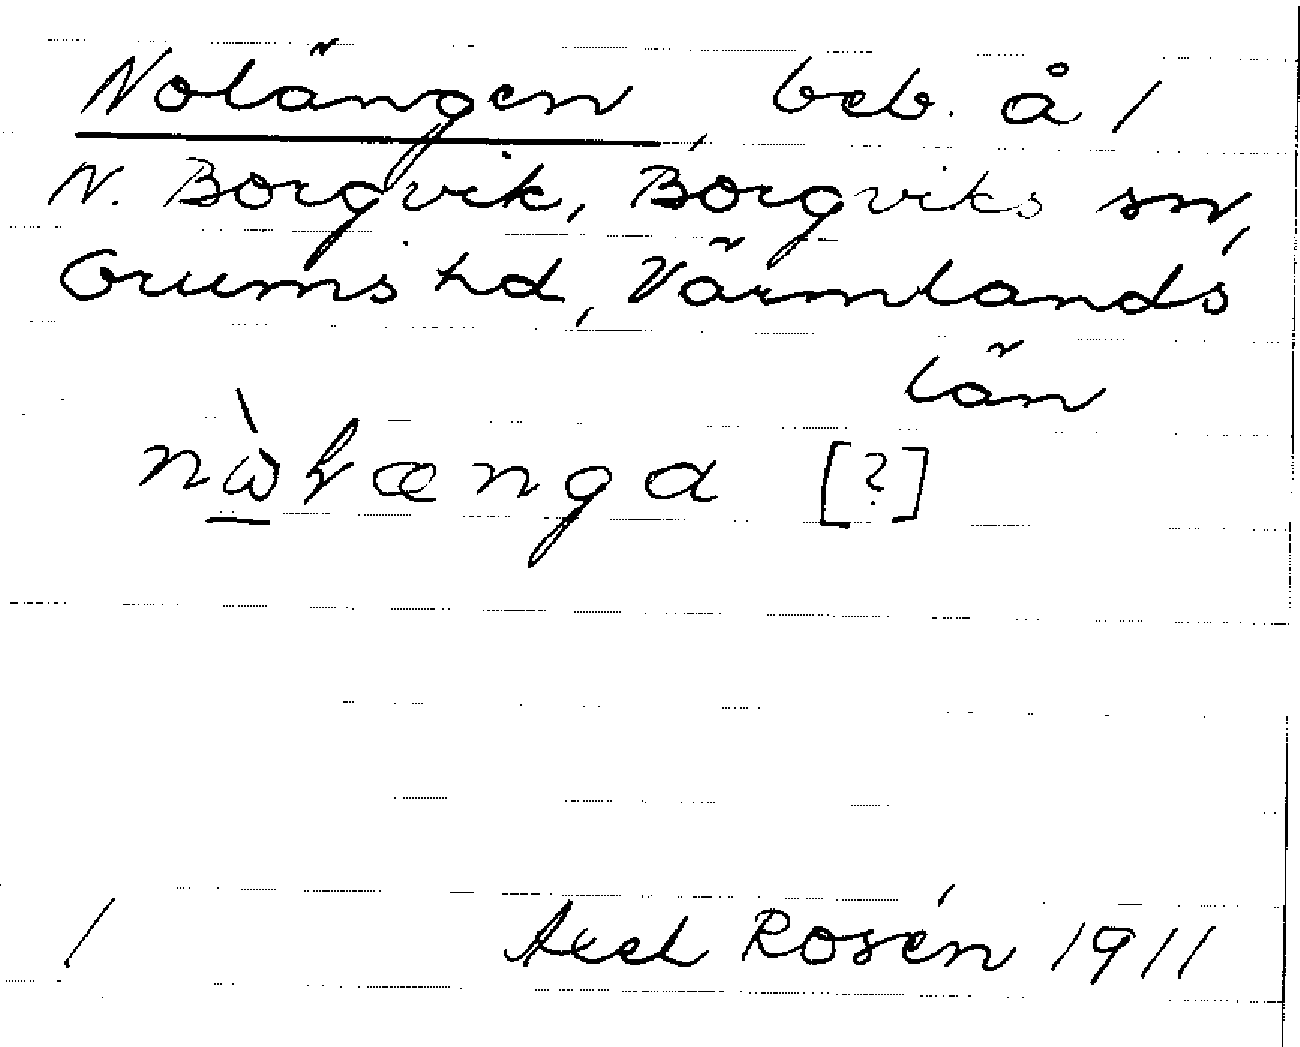 Nolängen, beb. å /
N. Borgvik, Borgviks sn,
Grums hd, Värmlands
län
[?]
/ Axel Rosén 1911